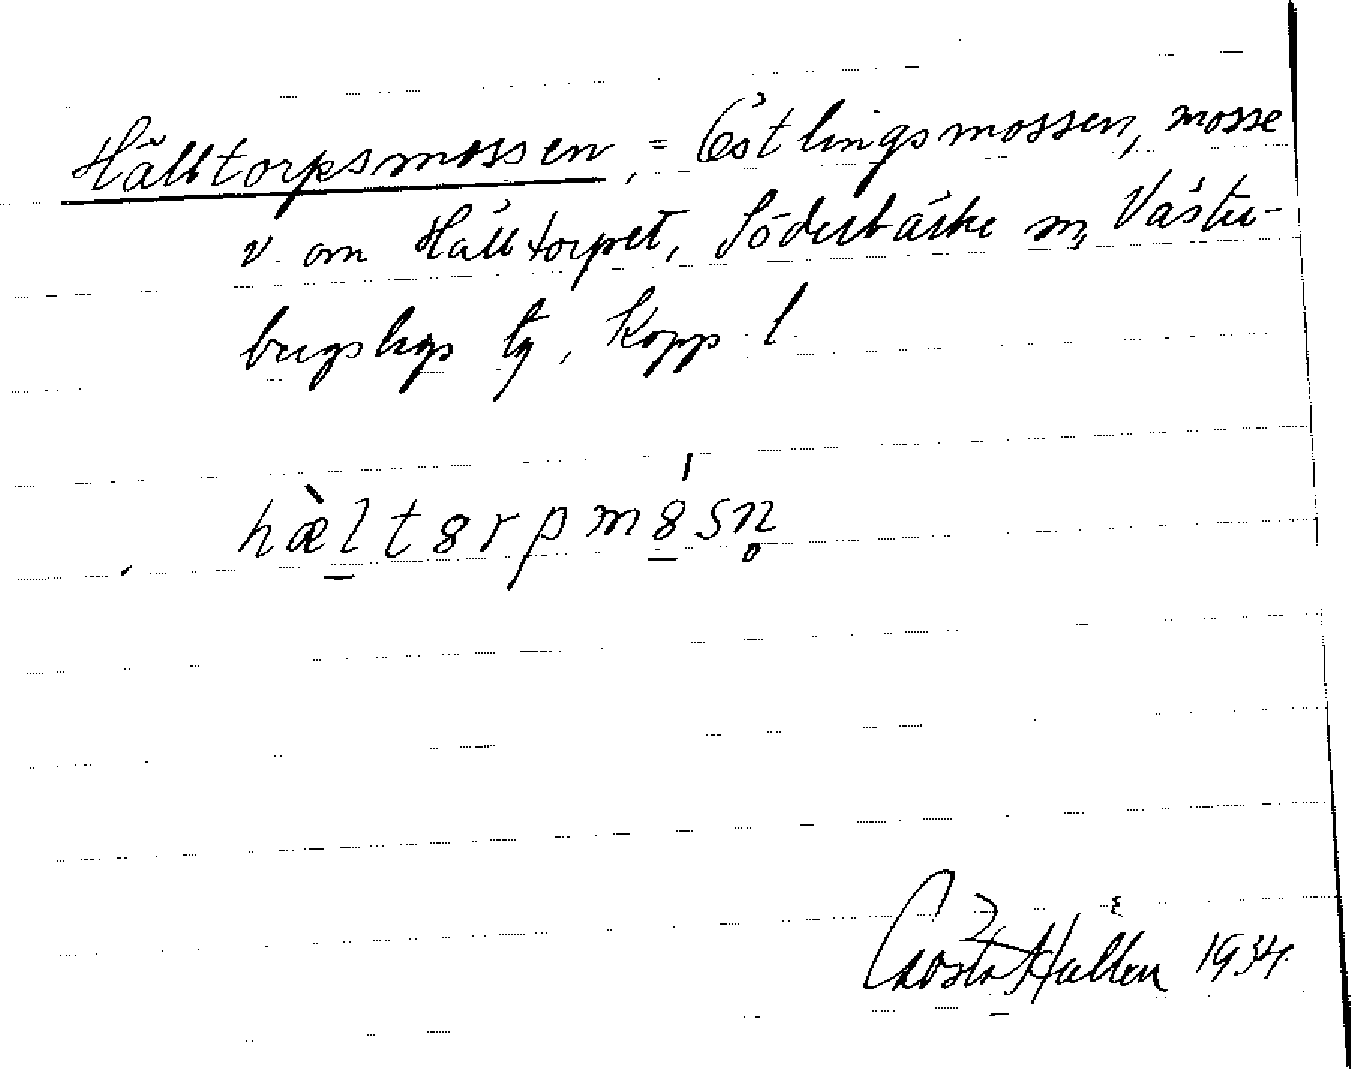 Hälltorpsmossen, = Östlingsmossen, mosse
v. om Hälltorpet, Söderbärke sn, Väster-
bergslags tg, Kopp l
hæ̀ltȣrpmȣ́sn̥
Gösta Hallén 1934